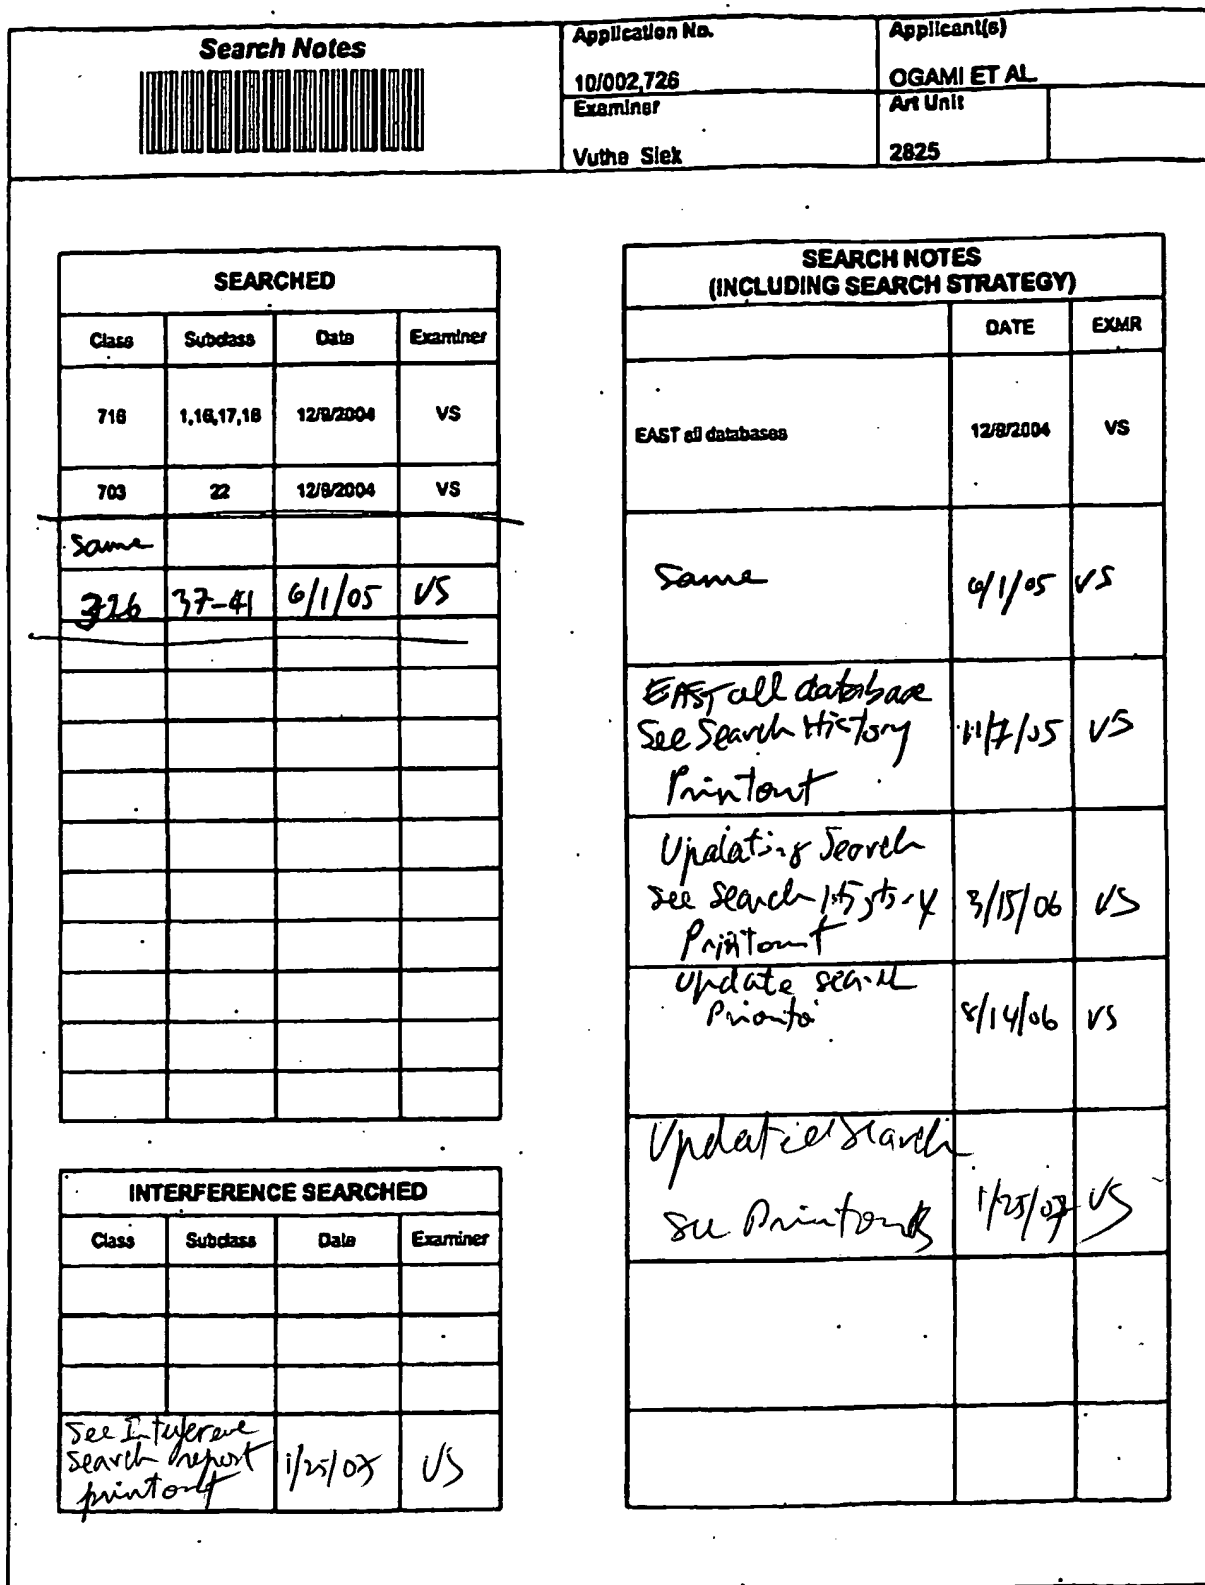 Search Notes
Application No.
10/002,726
Applicant(s)
OGAMI ET AL.
Examiner
Vuthe Siek
Art Unit
2825
SEARCHED
Class Subclass Date Examiner
716 1,16,17,18 12/8/2004 VS
703 22 12/8/2004 VS
Same
326 37-41 6/1/05 VS
INTERFERENCE SEARCHED
Class Subclass Date Examiner
See Interference
search report
printout
1/25/07 VS
SEARCH NOTES
(INCLUDING SEARCH STRATEGY)
DATE EXMR
EAST all databases 12/8/2004 VS
Same 6/1/05 VS
EAST all database
See Search History
Printout
11/7/05 VS
Updating Search
see search history
Printout
3/15/06 VS
Update search
8/14/06 VS
Updated Search
see Printouts
1/25/07 VS